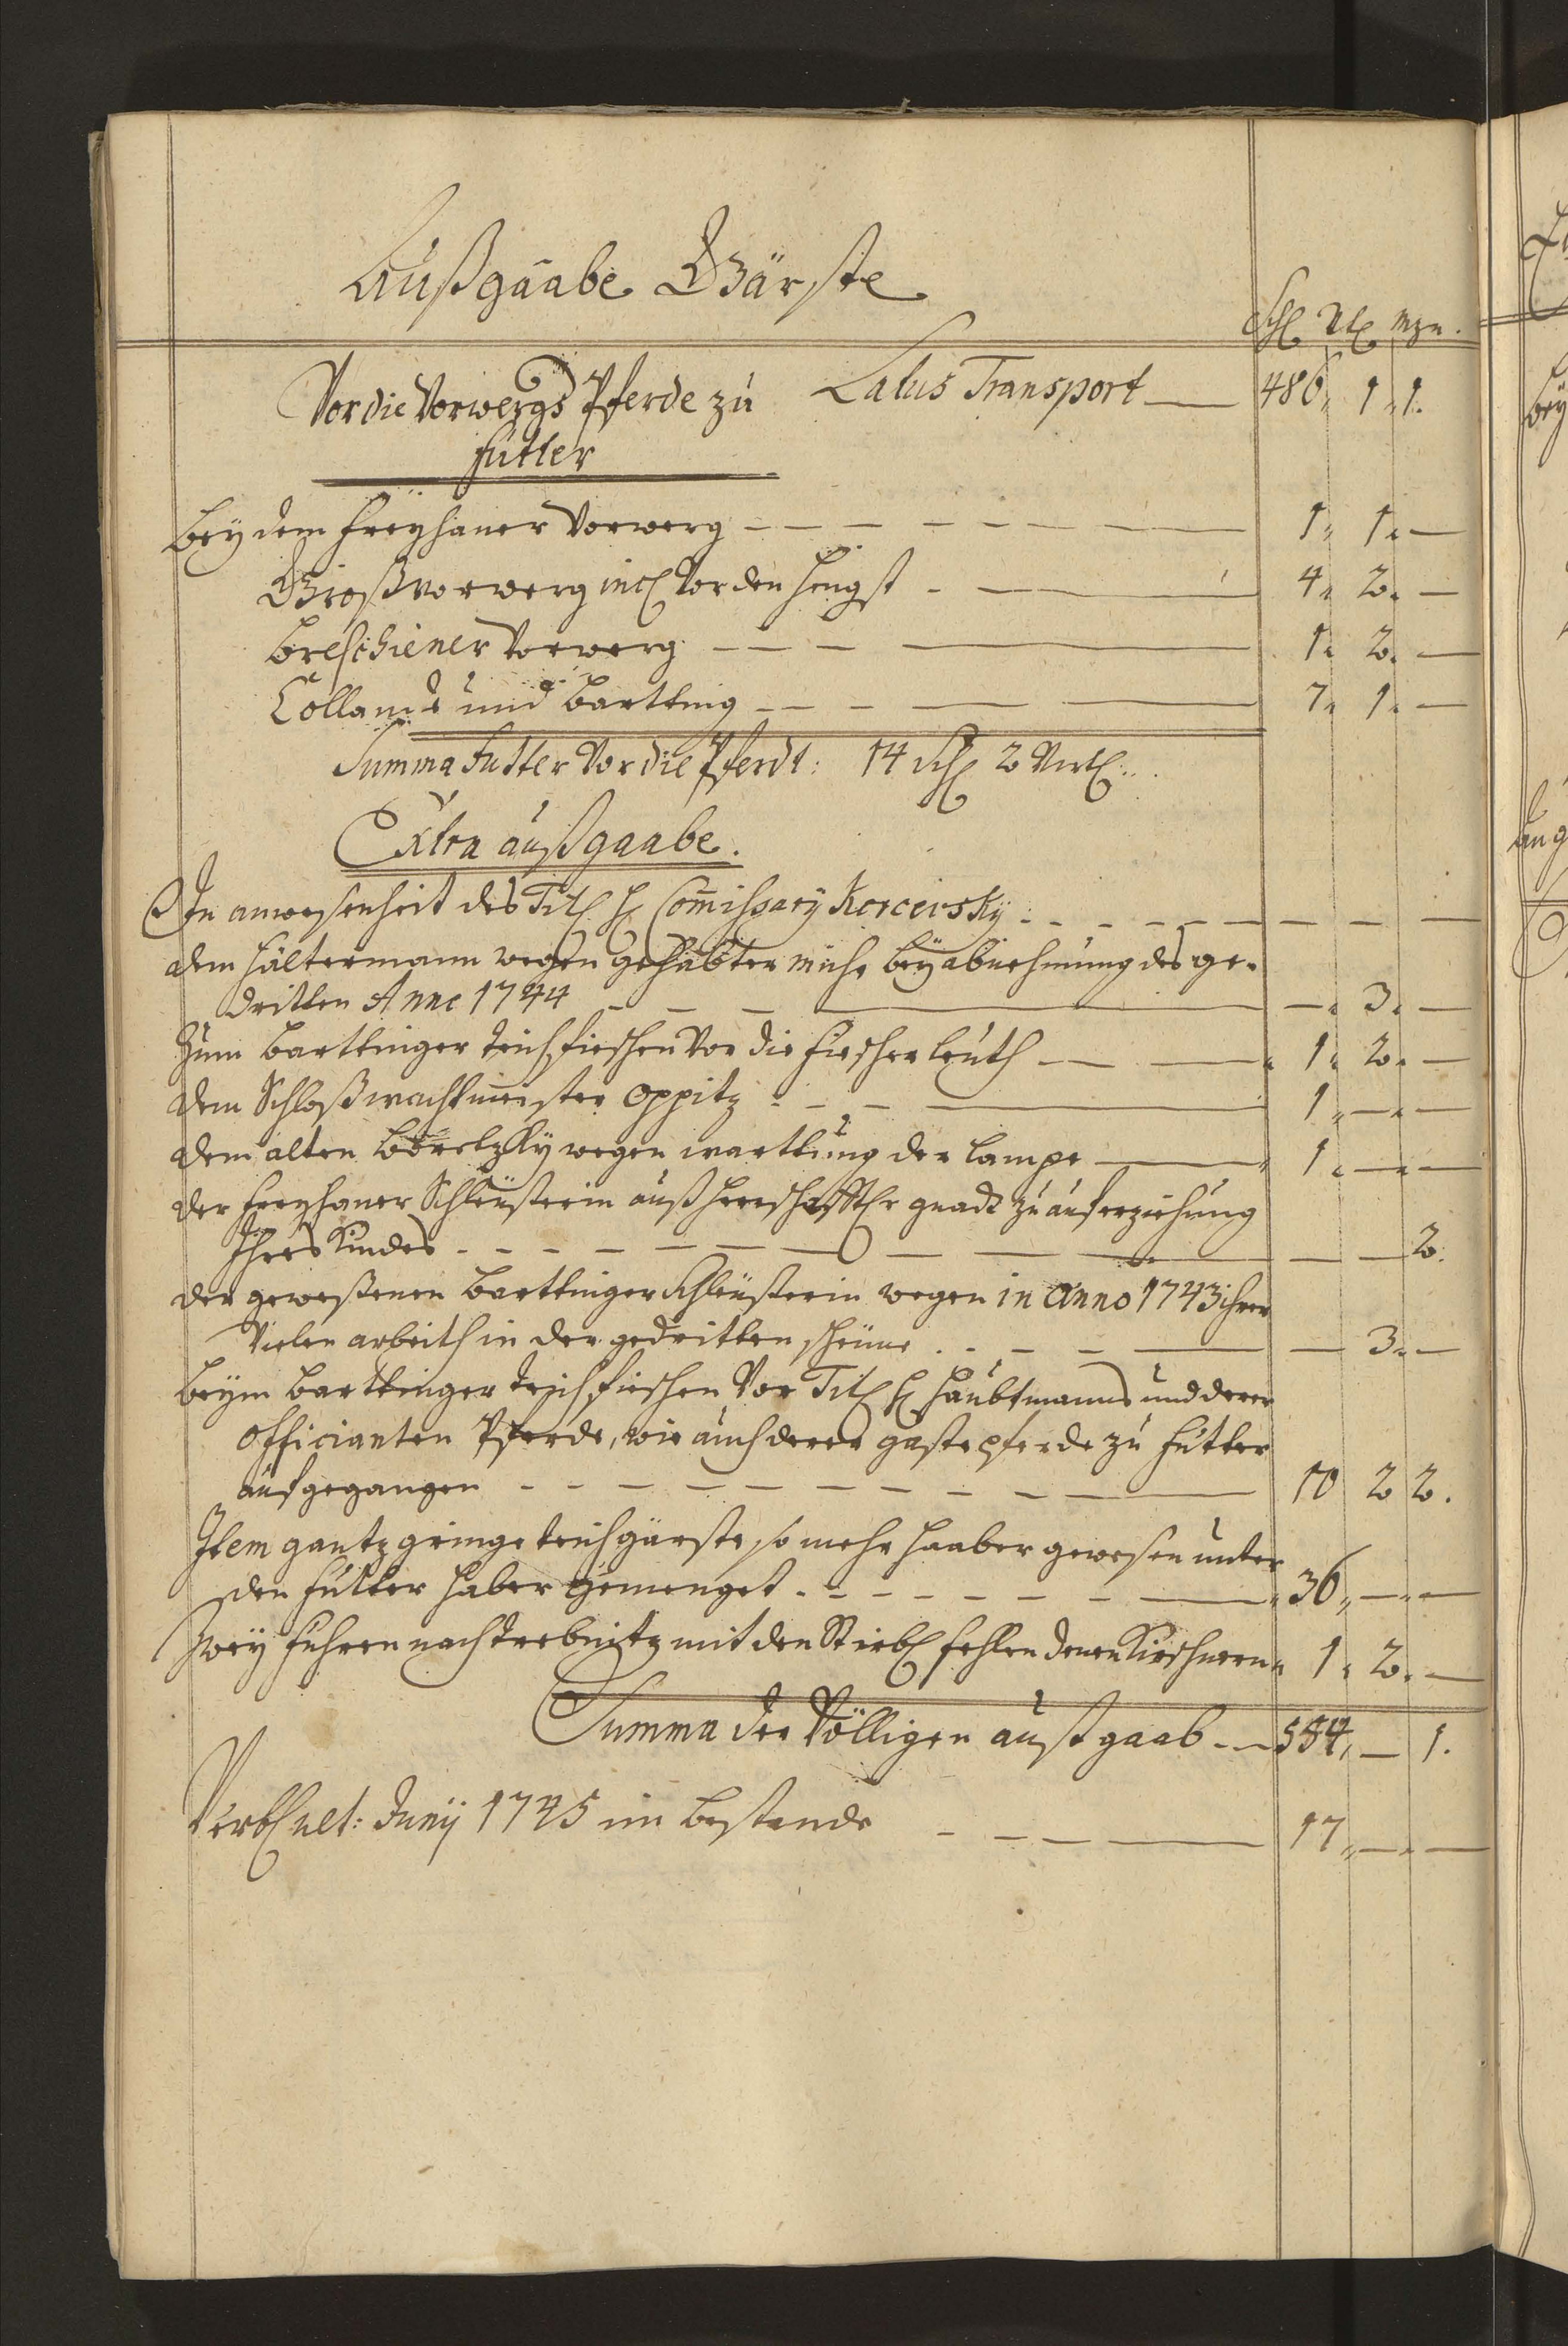 Außgaabe Gärste
Schl Vtl mzn.
Latus Transport — 486„ 1„ 1.
Vor die Vorwergs Pferde zu
futter
bey dem Freyhaner Vorwerg — 1„ 1„ —
Großvorwerg incl Vor den Hengst — 4„ 2„ —
Breschiener Vorwerg — 1„ 2„ —
Collande und Bartknig — 7„ 1„ —
Summa Futter Vor die Pferdt: 14 Schl 2 Virtl.
Extra außgaabe.
In anwesenheit des Titl H Com̄issary — — —
dem Hältermann wegen gehabter mühe bey abnehmung des ge-
dritten Anno 1744 — —„ 3„ —
Zum Bartkniger teich fischen Vor die Fischer leuth — 1„ 2„ —
dem Schloßwachtmeister Oppitz — 1„ — —
dem alten wegen warttung der Lampe — 1„ — —
der Freyhaner Schleüsterin auß Herrschafftlr gnade zu auferziehung
Ihres Kindes — — — 2.
der geweßenen Bartkniger Schleüsterin wegen in Anno 1743 ihrer
Vielen arbeith in der gedritten scheüne — — 3„ —
beym Bartkniger teich fischen Vor Titl H Haubtmanns und derer
Officianten Pferde, wie auch derer gaste pferde zu Futter
aufgegangen — 10 2 2.
Item gantz geringe teichgärste, so mehr Haaber gewesen unter
den Futter Haber gemenget — 36„ — —
Zwey Fuhren nach Trebnitz mit den fehlen denen Kirschnern 1„ 2„ —
Summa der Völligen außgaab — 554„ — 1.
Verbl ult: Juny 1745 im bestande — 17„ — —